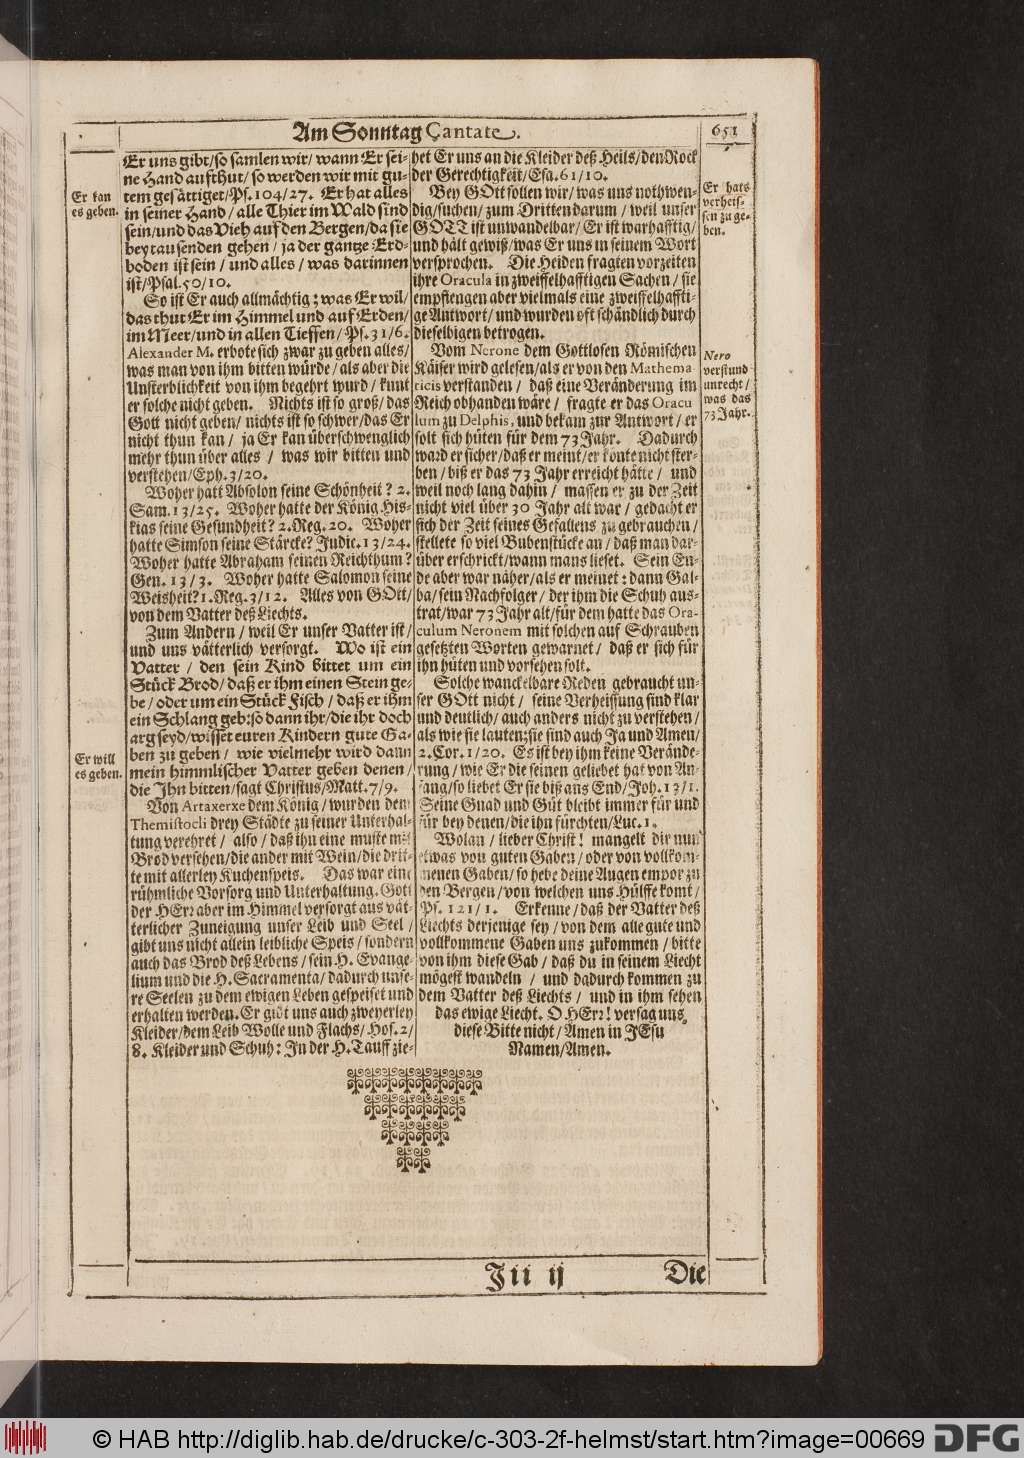 Am Sonntag Cantate.
651
Er kan
es geben.
Er uns gibt/so samlen wir/ wann Er sei-
ne Hand aufthut/ so werden wir mit gu-
tem gesättiget/Ps. 104/27. Er hat alles
in seiner Hand/ alle Thier im Wald sind
sein/und das Vieh auf den Bergen/da sie
bey tausenden gehen/ ja der gantze Erd-
boden ist sein/ und alles/ was darinnen
ist/Psal. 50/10.
So ist Er auch allmächtig; was Er wil/
das thut Er im Himmel und auf Erden/
im Meer/und in allen Tieffen/Ps. 31/6.
Alexander M. erbote sich zwar zu geben alles/
was man von ihm bitten würde/ als aber die
Unsterblichkeit von ihm begehrt wurd/ kunt
er solche nicht geben. Nichts ist so groß/das
Gott nicht geben/ nichts ist so schwer/das Er
nicht thun kan/ ja Er kan überschwenglich
mehr thun über alles/ was wir bitten und
verstehen/Eph. 3/20.
Woher hatt Absolon seine Schönheit? 2.
Sam. 13/25. Woher hatte der König His-
kias seine Gesundheit? 2. Reg. 20. Woher
hatte Simson seine Stärcke? Judic. 13/24.
Woher hatte Abraham seinen Reichthum?
Gen. 13/3. Woher hatte Salomon seine
Weisheit? 1. Reg. 3/12. Alles von GOtt/
von dem Vatter deß Liechts.
Zum Andern/ weil Er unser Vatter ist/
und uns vätterlich versorgt. Wo ist ein
Vatter/ den sein Kind bittet um ein
Stück Brod/ daß er ihm einen Stein ge-
be/ oder um ein Stück Fisch/ daß er ihm
ein Schlang geb: so dann ihr/die ihr doch
arg seyd/wisset euren Kindern gute Ga-
ben zu geben/ wie vielmehr wird dann
mein himmlischer Vatter geben denen/
die Ihn bitten/sagt Christus/Matt. 7/9.
Er will
es geben.
Von Artaxerxe dem König/ wurden dem
Themistocli drey Städte zu seiner Unterhal-
tung verehret/ also/ daß ihn eine muste mit
Brod versehen/die ander mit Wein/die drit-
te mit allerley Kuchenspeis. Das war eine
rühmliche Vorsorg und Unterhaltung. Gott
der HErr aber im Himmel versorgt aus vät-
terlicher Zuneigung unser Leib und Seel/
gibt uns nicht allein leibliche Speis/ sondern
auch das Brod deß Lebens/ sein H. Evange-
lium und die H. Sacramenta/ dadurch unse-
re Seelen zu dem ewigen Leben gespeiset und
erhalten werden. Er gibt uns auch zweyerley
Kleider/dem Leib Wolle und Flachs/ Hos. 2/
8. Kleider und Schuh: In der H. Tauff zie-
het Er uns an die Kleider deß Heils/den Rock
der Gerechtigkeit/Esa. 61/10.
Bey GOtt sollen wir/ was uns nothwen-
dig/suchen/ zum Dritten darum/ weil unser
GOTT ist unwandelbar/ Er ist warhafftig/
und hält gewiß/was Er uns in seinem Wort
versprochen. Die Heiden fragten vorzeiten
ihre Oracula in zweiffelhafftigen Sachen/ sie
empfiengen aber vielmals eine zweiffelhaffti-
ge Antwort/ und wurden oft schändlich durch
dieselbigen betrogen.
Er hats
verheis-
sen zu ge-
ben.
Vom Nerone dem Gottlosen Römischen
Käiser wird gelesen/als er von den Mathema-
ticis verstanden/ daß eine Veränderung im
Reich obhanden wäre/ fragte er das Oracu
lum zu Delphis, und bekam zur Antwort/ er
solt sich hüten für dem 73 Jahr. Dadurch
ward er sicher/daß er meint/er könte nicht ster-
ben/ biß er das 73 Jahr erreicht hätte/ und
weil noch lang dahin/ massen er zu der Zeit
nicht viel über 30 Jahr alt war/ gedacht er
sich der Zeit seines Gefallens zu gebrauchen/
stellete so viel Bubenstücke an/ daß man dar-
über erschrickt/wann mans lieset. Sein En-
de aber war näher/als er meinet: dann Gal-
ba/sein Nachfolger/ der ihm die Schuh aus-
trat/war 73 Jahr alt/für dem hatte das Ora-
culum Neronem mit solchen auf Schrauben
gesetzten Worten gewarnet/ daß er sich für
ihn hüten und vorsehen solt.
Nero
verstund
unrecht/
was das
73 Jahr.
Solche wanckelbare Reden gebraucht un-
ser GOtt nicht/ seine Verheissung sind klar
und deutlich/ auch anders nicht zu verstehen/
als wie sie lauten; sie sind auch Ja und Amen/
2. Cor. 1/20. Es ist bey ihm keine Verände-
rung/ wie Er die seinen geliebet hat von An-
fang/so liebet Er sie biß ans End/Joh. 13/1.
Seine Gnad und Güt bleibt immer für und
für bey denen/die ihn fürchten/Luc. 1.
Wolan/ lieber Christ! mangelt dir nun
etwas von guten Gaben/ oder von vollkom-
menen Gaben/ so hebe deine Augen empor zu
den Bergen/ von welchen uns Hülffe komt/
Ps. 121/1. Erkenne/ daß der Vatter deß
Liechts derjenige sey/ von dem alle gute und
vollkommene Gaben uns zukommen/ bitte
von ihm diese Gab/ daß du in seinem Liecht
mögest wandeln/ und dadurch kommen zu
dem Vatter deß Liechts/ und in ihm sehen
das ewige Liecht. O HErr! versag uns
diese Bitte nicht/ Amen in JEsu
Namen/Amen.
Jii ij
Die
© HAB http://diglib.hab.de/drucke/c-303-2f-helmst/start.htm?image=00669
DFG